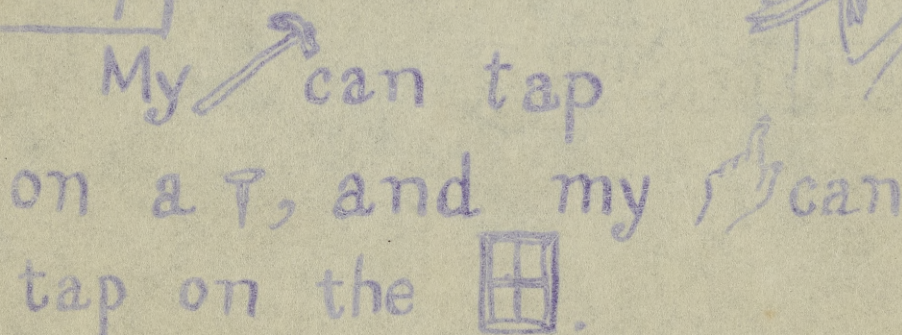 My can tap
on a , and my can
tap on the .